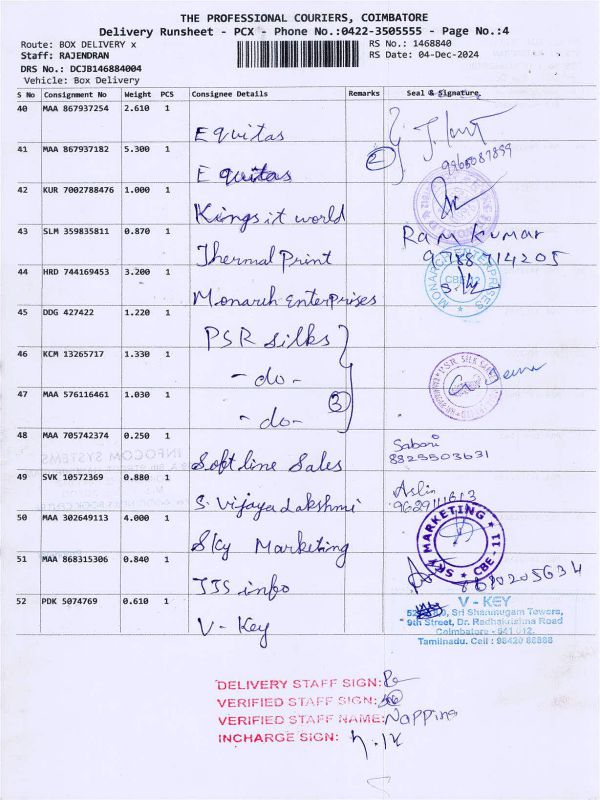 THE PROFESSIONAL COURIERS, COIMBATORE
Delivery Runsheet - PCX - Phone No.:0422-3505555 - Page No.:4
Route: BOX DELIVERY x
RS No.: 1468840
Staff: RAJENDRAN
RS Date: 04-Dec-2024
DRS No.: DCJB146884004
Vehicle: Box Delivery
S No Consignment No Weight PCS Consignee Details Remarks Seal & Signature
40 MAA 867937254 2.610 1
Equitas
9965087899
41 MAA 867937182 5.300 1
Equitas
2
42 KUR 7002788476 1.000 1
Kings it world
43 SLM 359835811 0.870 1
Ram Kumar
Thermal Print
9788714205
44 HRD 744169453 3.200 1
Monarch Enterprises
MONARCH ENTERPRISES
45 DDG 427422 1.220 1
PSR silks
46 KCM 13265717 1.330 1
- do -
47 MAA 576116461 1.030 1
3
- do -
48 MAA 705742374 0.250 1
Sabari
8825503631
Softline Sales
INFOCOM SYSTEMS
49 SVK 10572369 0.880 1
Aslin
S. Vijaya Lakshmi
50 MAA 302649113 4.000 1
Sky Marketing
SKY MARKETING
51 MAA 868315306 0.840 1
8690205634
52 PDK 5074769 0.610 1
V - Key
V - KEY
Sri Shanmugam Towers,
9th Street, Dr. Radhakrishna Road
Coimbatore - 641 012.
Tamilnadu. Cell : 98420 88888
DELIVERY STAFF SIGN:
VERIFIED STAFF SIGN:
VERIFIED STAFF NAME:
INCHARGE SIGN: